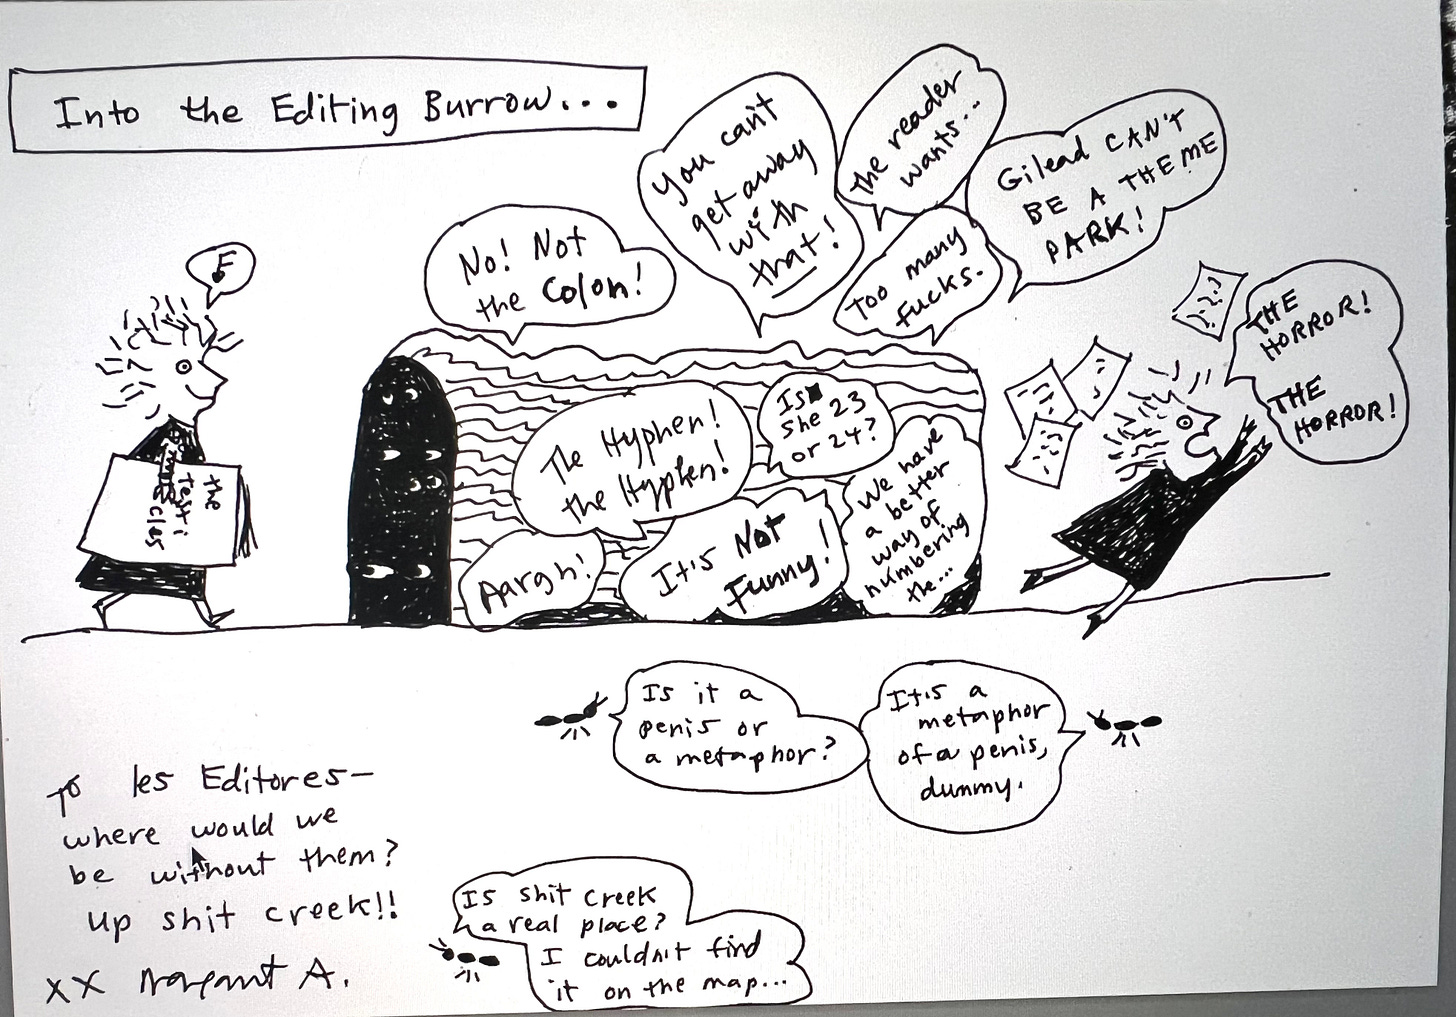 Into the Editing Burrow...
No! Not
the Colon!
You can't
get away
with
that!
The reader
wants...
Gilead CAN'T
BE A THEME
PARK!
Too many
fucks.
THE
HORROR!
THE
HORROR!
the
Testi
cles
The Hyphen!
the Hyphen!
Is
She 23
or 24?
We have
a better
way of
numbering
the...
Aargh!
It's Not
Funny!
Is it a
penis or
a metaphor?
It's a
metaphor
of a penis,
dummy.
To les Editores—
where would we
be without them?
up shit creek!!
xx Margaret A.
Is shit creek
a real place?
I couldn't find
it on the map...